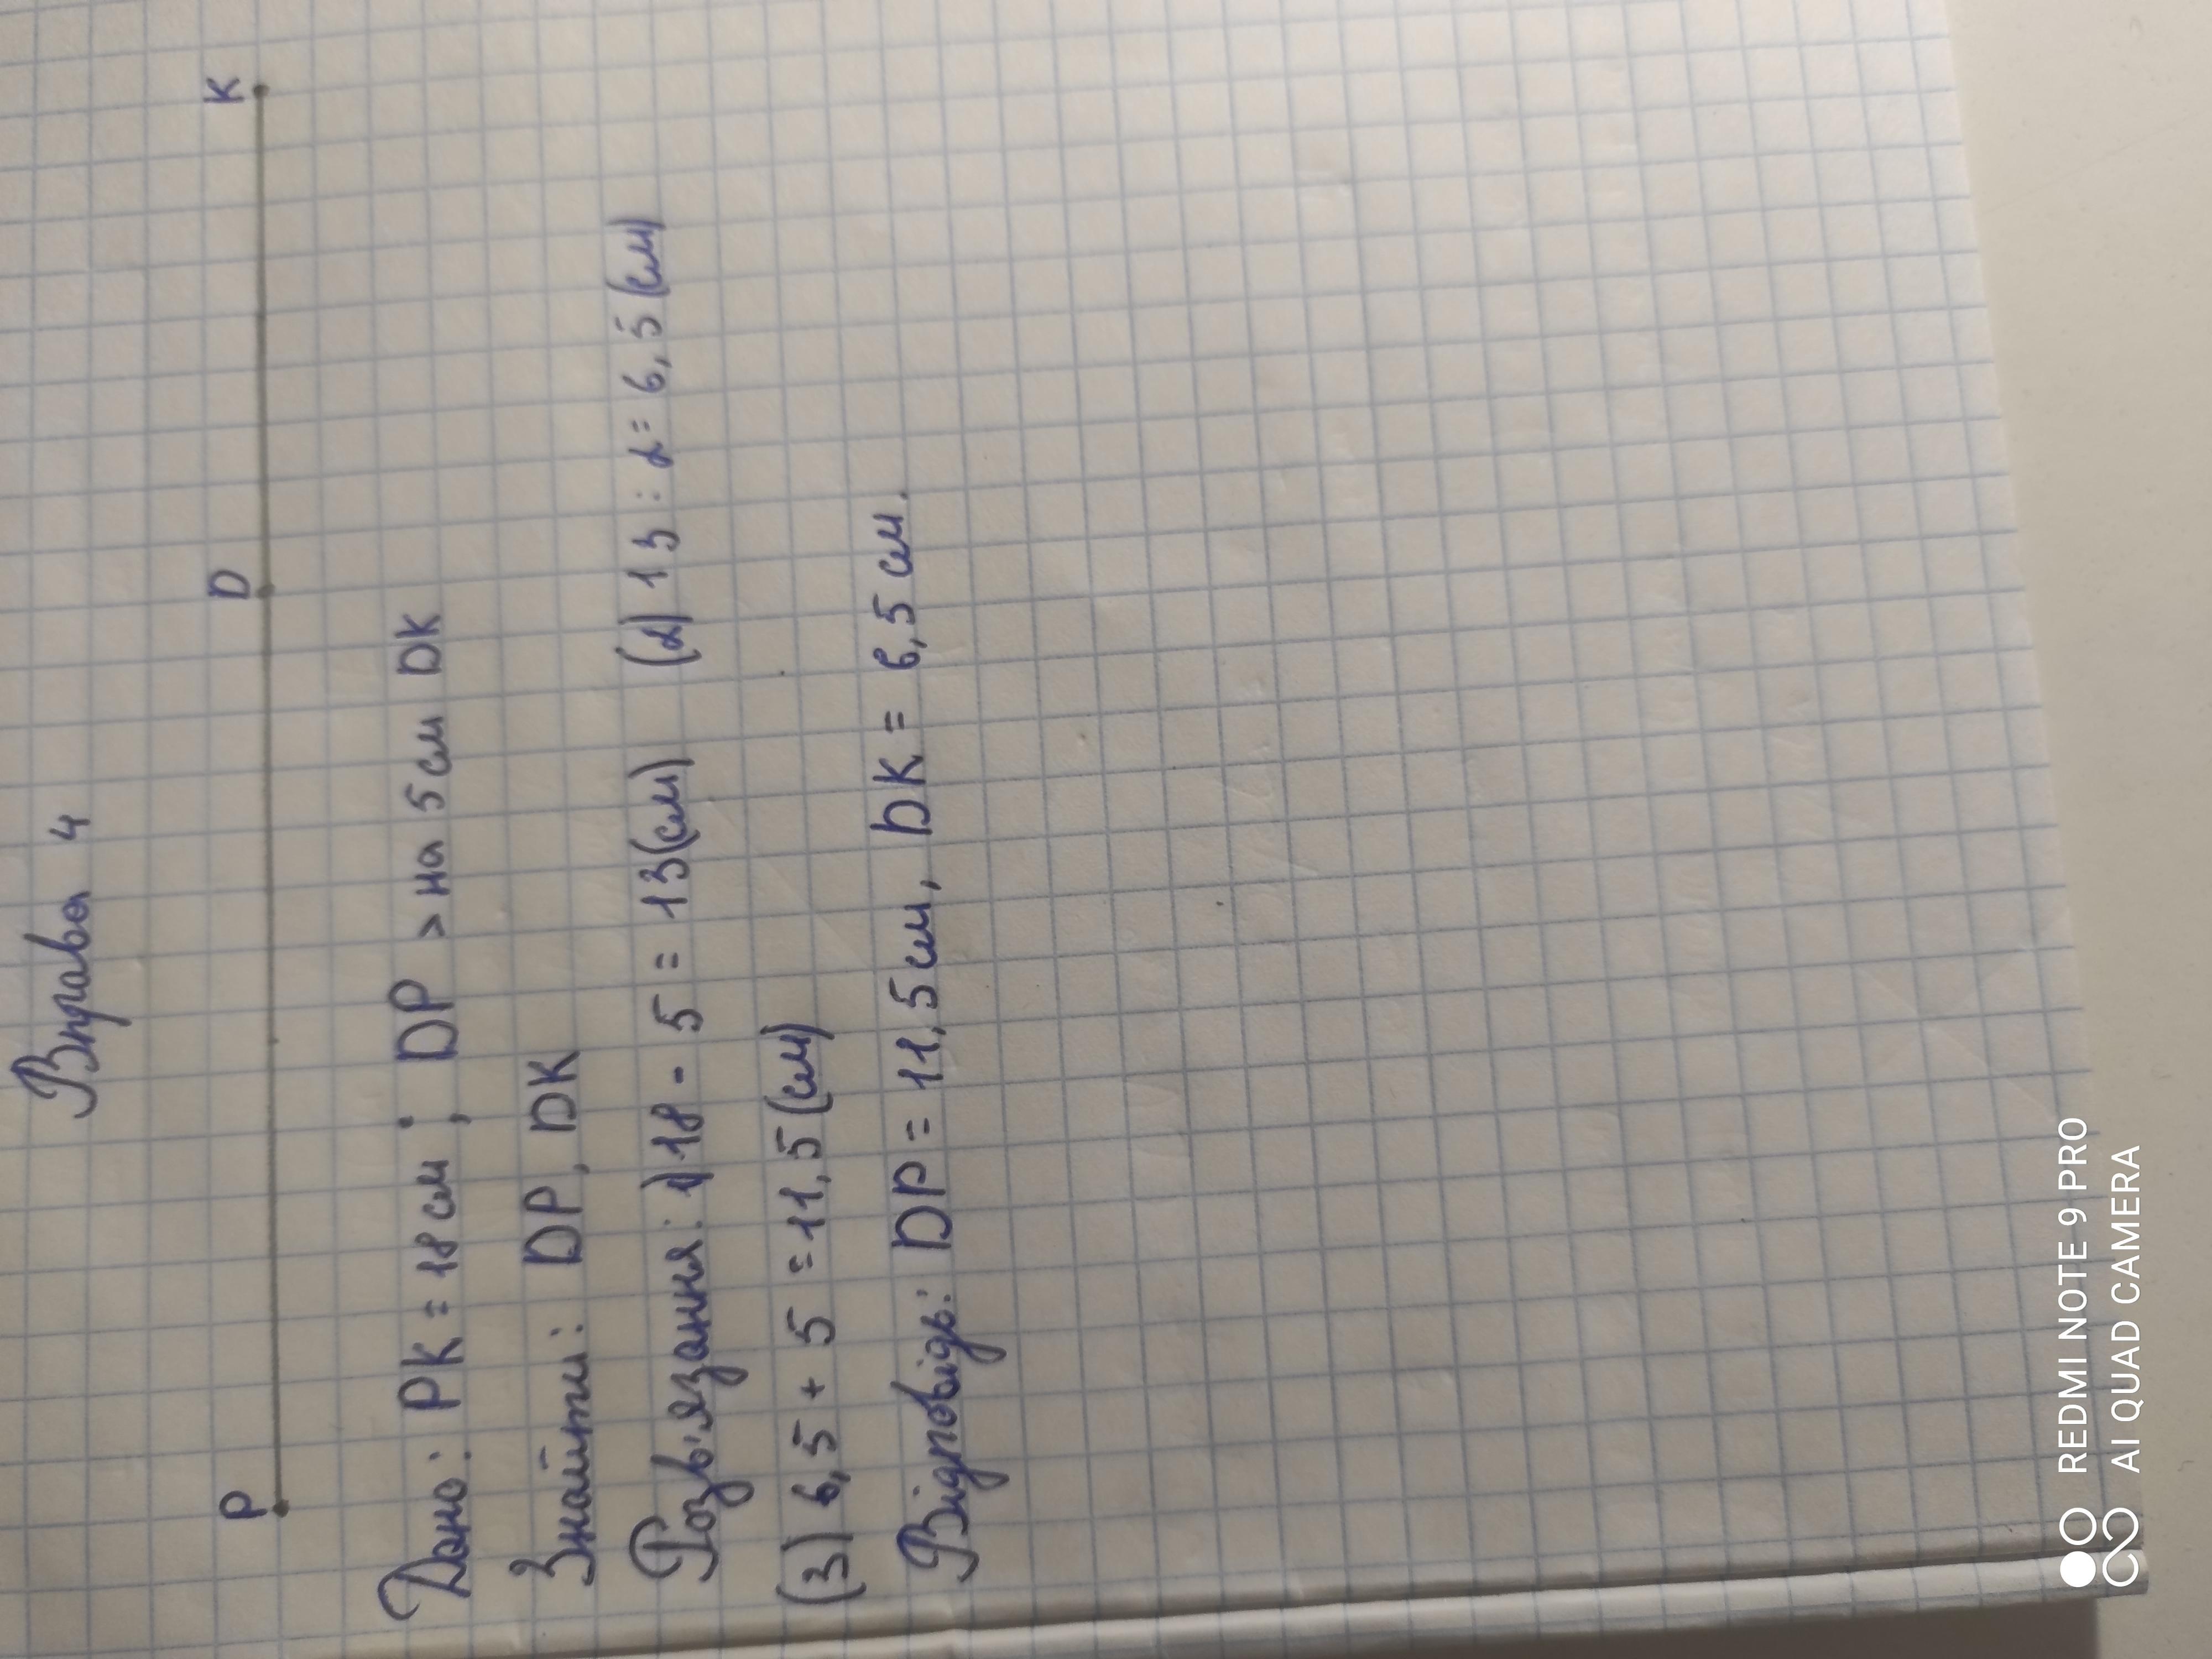 Вправа 4
P D K
Дано: PK = 18 см ; DP > на 5 см DK
Знайти: DP, DK
Розв'язання: 1) 18 - 5 = 13(см) (2) 13 : 2 = 6,5 (см)
(3) 6,5 + 5 = 11,5 (см)
Відповідь: DP = 11,5 см, DK = 6,5 см.
REDMI NOTE 9 PRO
AI QUAD CAMERA